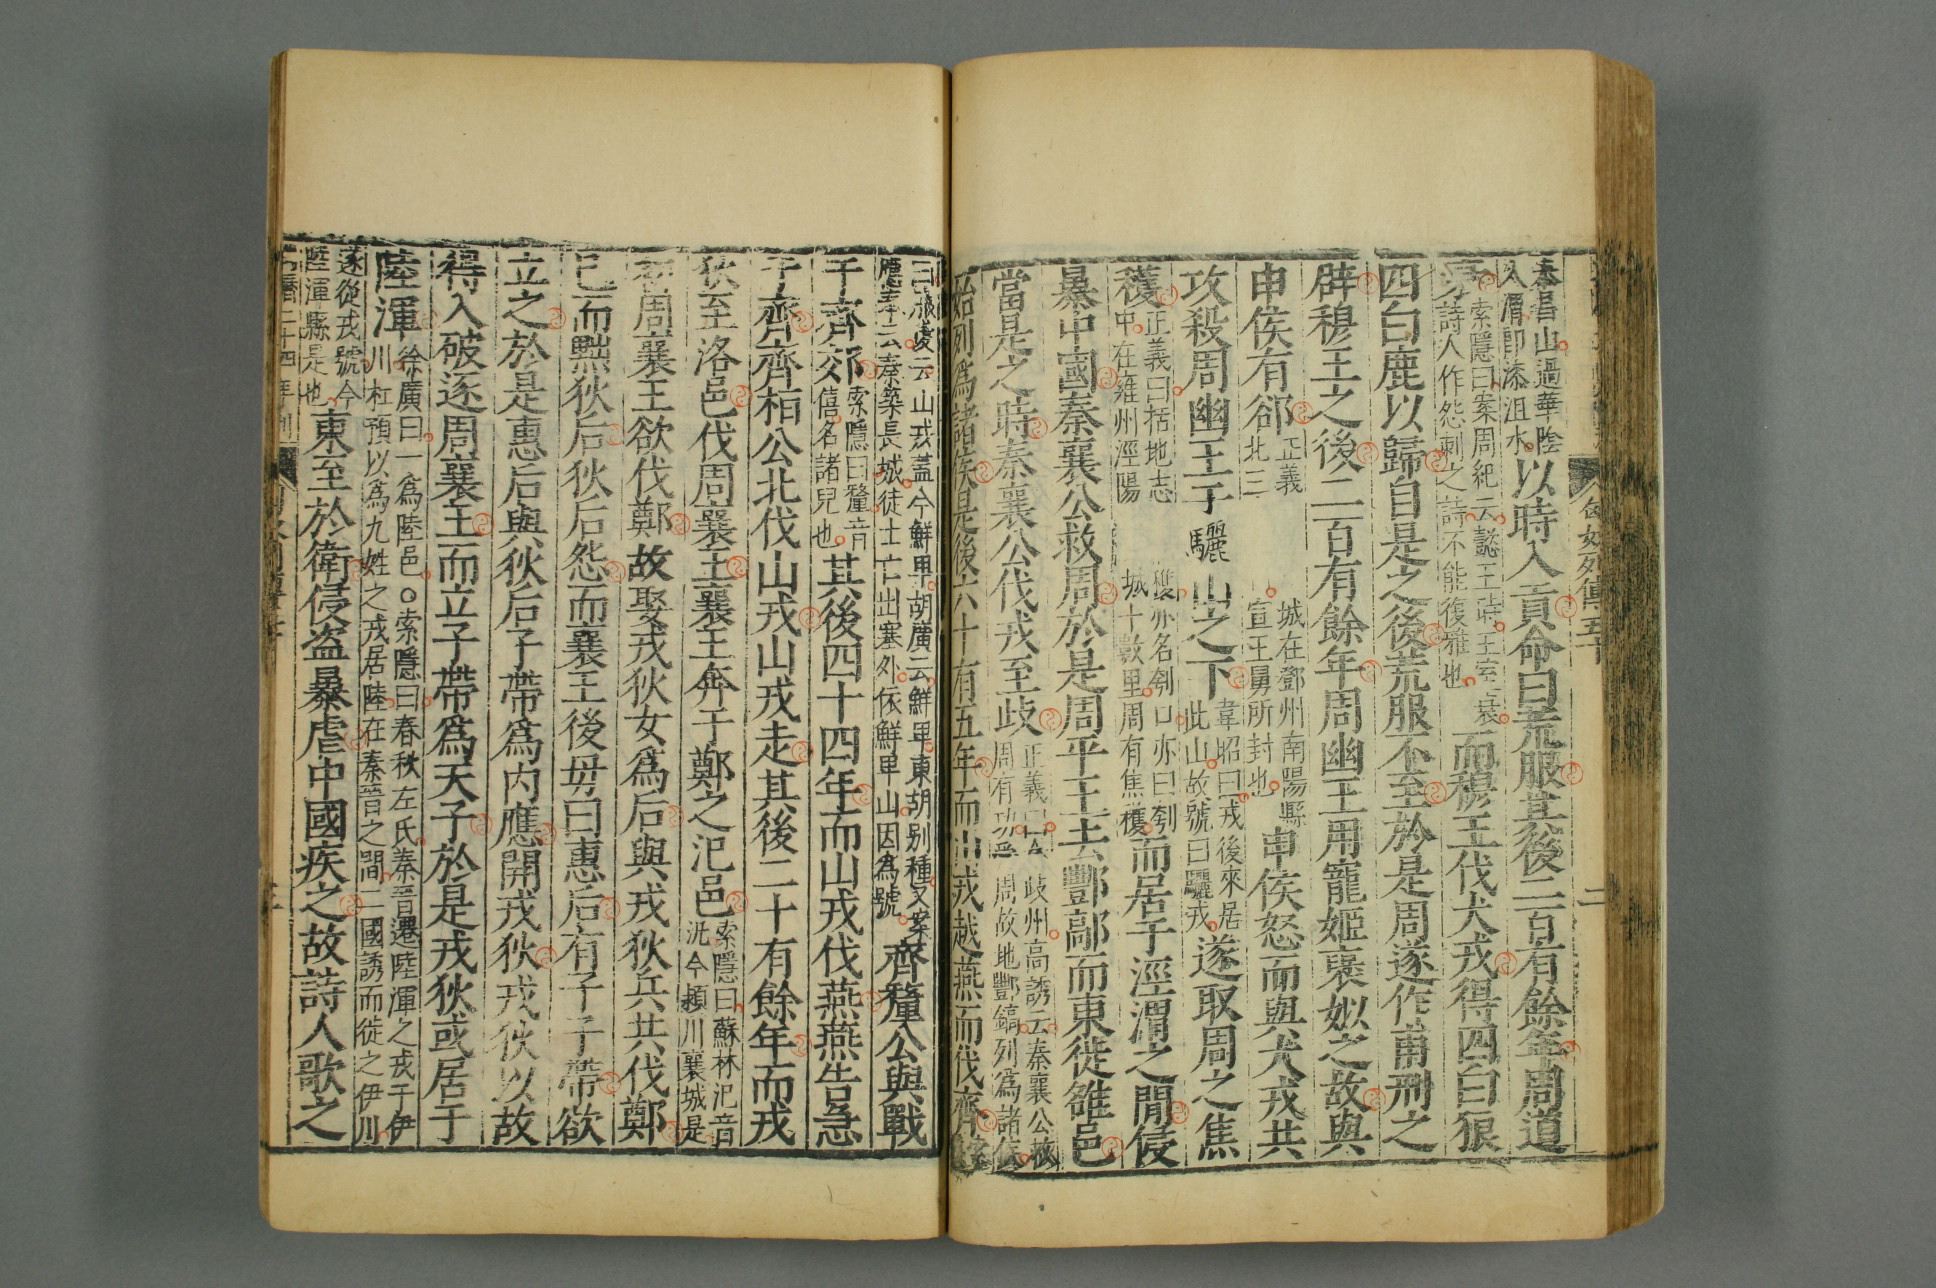 匈奴列傳五十
二
山過華陰
入渭即漆沮水
以時入貢命曰荒服其後二百有餘年周道
衰
索隱曰案周紀云懿王時王室衰
詩人作怨刺之詩不能復雅也
而穆王伐犬戎得四白狼
四白鹿以歸自是之後荒服不至於是周遂作甫刑之
辟穆王之後二百有餘年周幽王用寵姬褒姒之故與
申侯有郤
正義
城在鄧州南陽縣
北三
宣王舅所封也
申侯怒而與犬戎共
攻殺周幽王于驪山之下
韋昭曰戎後來居
此山故號曰驪戎
遂取周之焦
穫
正義曰括地志
亦名刳口亦曰刳
中在雍州涇陽
城十數里周有焦穫
而居于涇渭之間侵
暴中國秦襄公救周於是周平王去酆鄗而東徙雒邑
當是之時秦襄公伐戎至歧
正義曰
歧州高誘云秦襄公救
周有功
周故地酆鎬列為諸侯
始列為諸侯是後六十有五年而山戎越燕而伐齊
曰服虔云山戎蓋今鮮卑胡廣云鮮卑東胡別種又案
應奉云秦築長城徒士亡出塞外依鮮卑山因為號
齊釐公與戰
于齊郊
索隱曰釐音
僖名諸兒也
其後四十四年而山戎伐燕燕告急
于齊齊桓公北伐山戎山戎走其後二十有餘年而戎
狄至洛邑伐周襄王襄王奔于鄭之氾邑
索隱曰蘇林氾音
汎今潁川襄城是
初周襄王欲伐鄭故娶戎狄女為后與戎狄兵共伐鄭
已而黜狄后狄后怨而襄王後母曰惠后有子子帶欲
立之於是惠后與狄后子帶為內應開戎狄戎狄以故
得入破逐周襄王而立子帶為天子於是戎狄或居于
陸渾
徐廣曰一為陸邑○索隱曰春秋左氏秦晉遷陸渾之戎于伊
川杜預以為九姓之戎居陸在秦晉之間二國誘而徙之伊川
遂從戎號今
陸渾縣是也
東至於衛侵盗暴虐中國中國疾之故詩人歌之